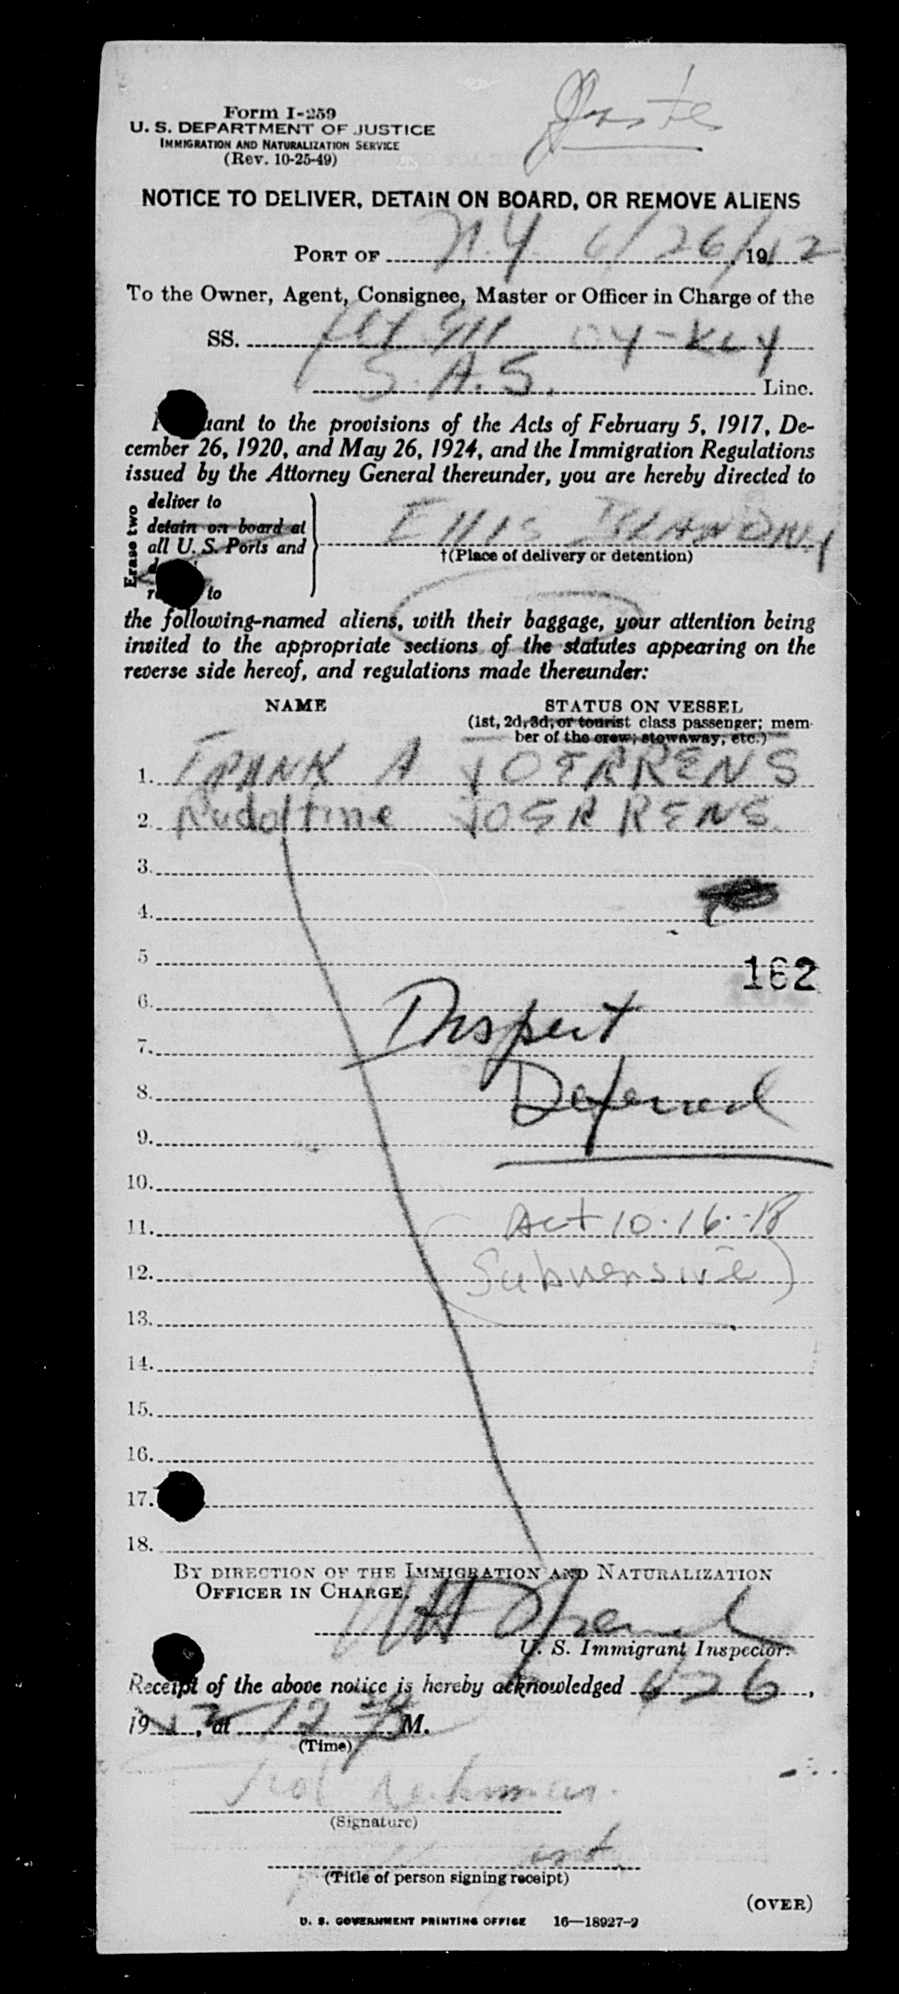 Form I-259
U. S. DEPARTMENT OF JUSTICE
IMMIGRATION AND NATURALIZATION SERVICE
(Rev. 10-25-49)
NOTICE TO DELIVER, DETAIN ON BOARD, OR REMOVE ALIENS
PORT OF N.Y. 6/26/, 19 2
To the Owner, Agent, Consignee, Master or Officer in Charge of the
SS. OY-KLY
S.A.S. Line.
uant to the provisions of the Acts of February 5, 1917, De-
cember 26, 1920, and May 26, 1924, and the Immigration Regulations
issued by the Attorney General thereunder, you are hereby directed to
Erase two
deliver to
detain on board at
all U. S. Ports and
to
Ellis ISLAND NY
†(Place of delivery or detention)
the following-named aliens, with their baggage, your attention being
invited to the appropriate sections of the statutes appearing on the
reverse side hereof, and regulations made thereunder:
NAME STATUS ON VESSEL
(1st, 2d, 3d, or tourist class passenger; mem-
ber of the crew; stowaway, etc.)
1. FRANK A JOERRENS
2. Rudolfine JOERRENS
3.
4.
5
162
6.
7.
8. Deferred
9.
10.
11. Act 10-16-18
12. (Subversive)
13.
14.
15.
16.
17.
18.
BY DIRECTION OF THE IMMIGRATION AND NATURALIZATION
OFFICER IN CHARGE.
U. S. Immigrant Inspector.
Receipt of the above notice is hereby acknowledged 6 26,
19 , at 12 30 M.
(Time)
(Signature)
(Title of person signing receipt)
(OVER)
U. S. GOVERNMENT PRINTING OFFICE 16—18927-2